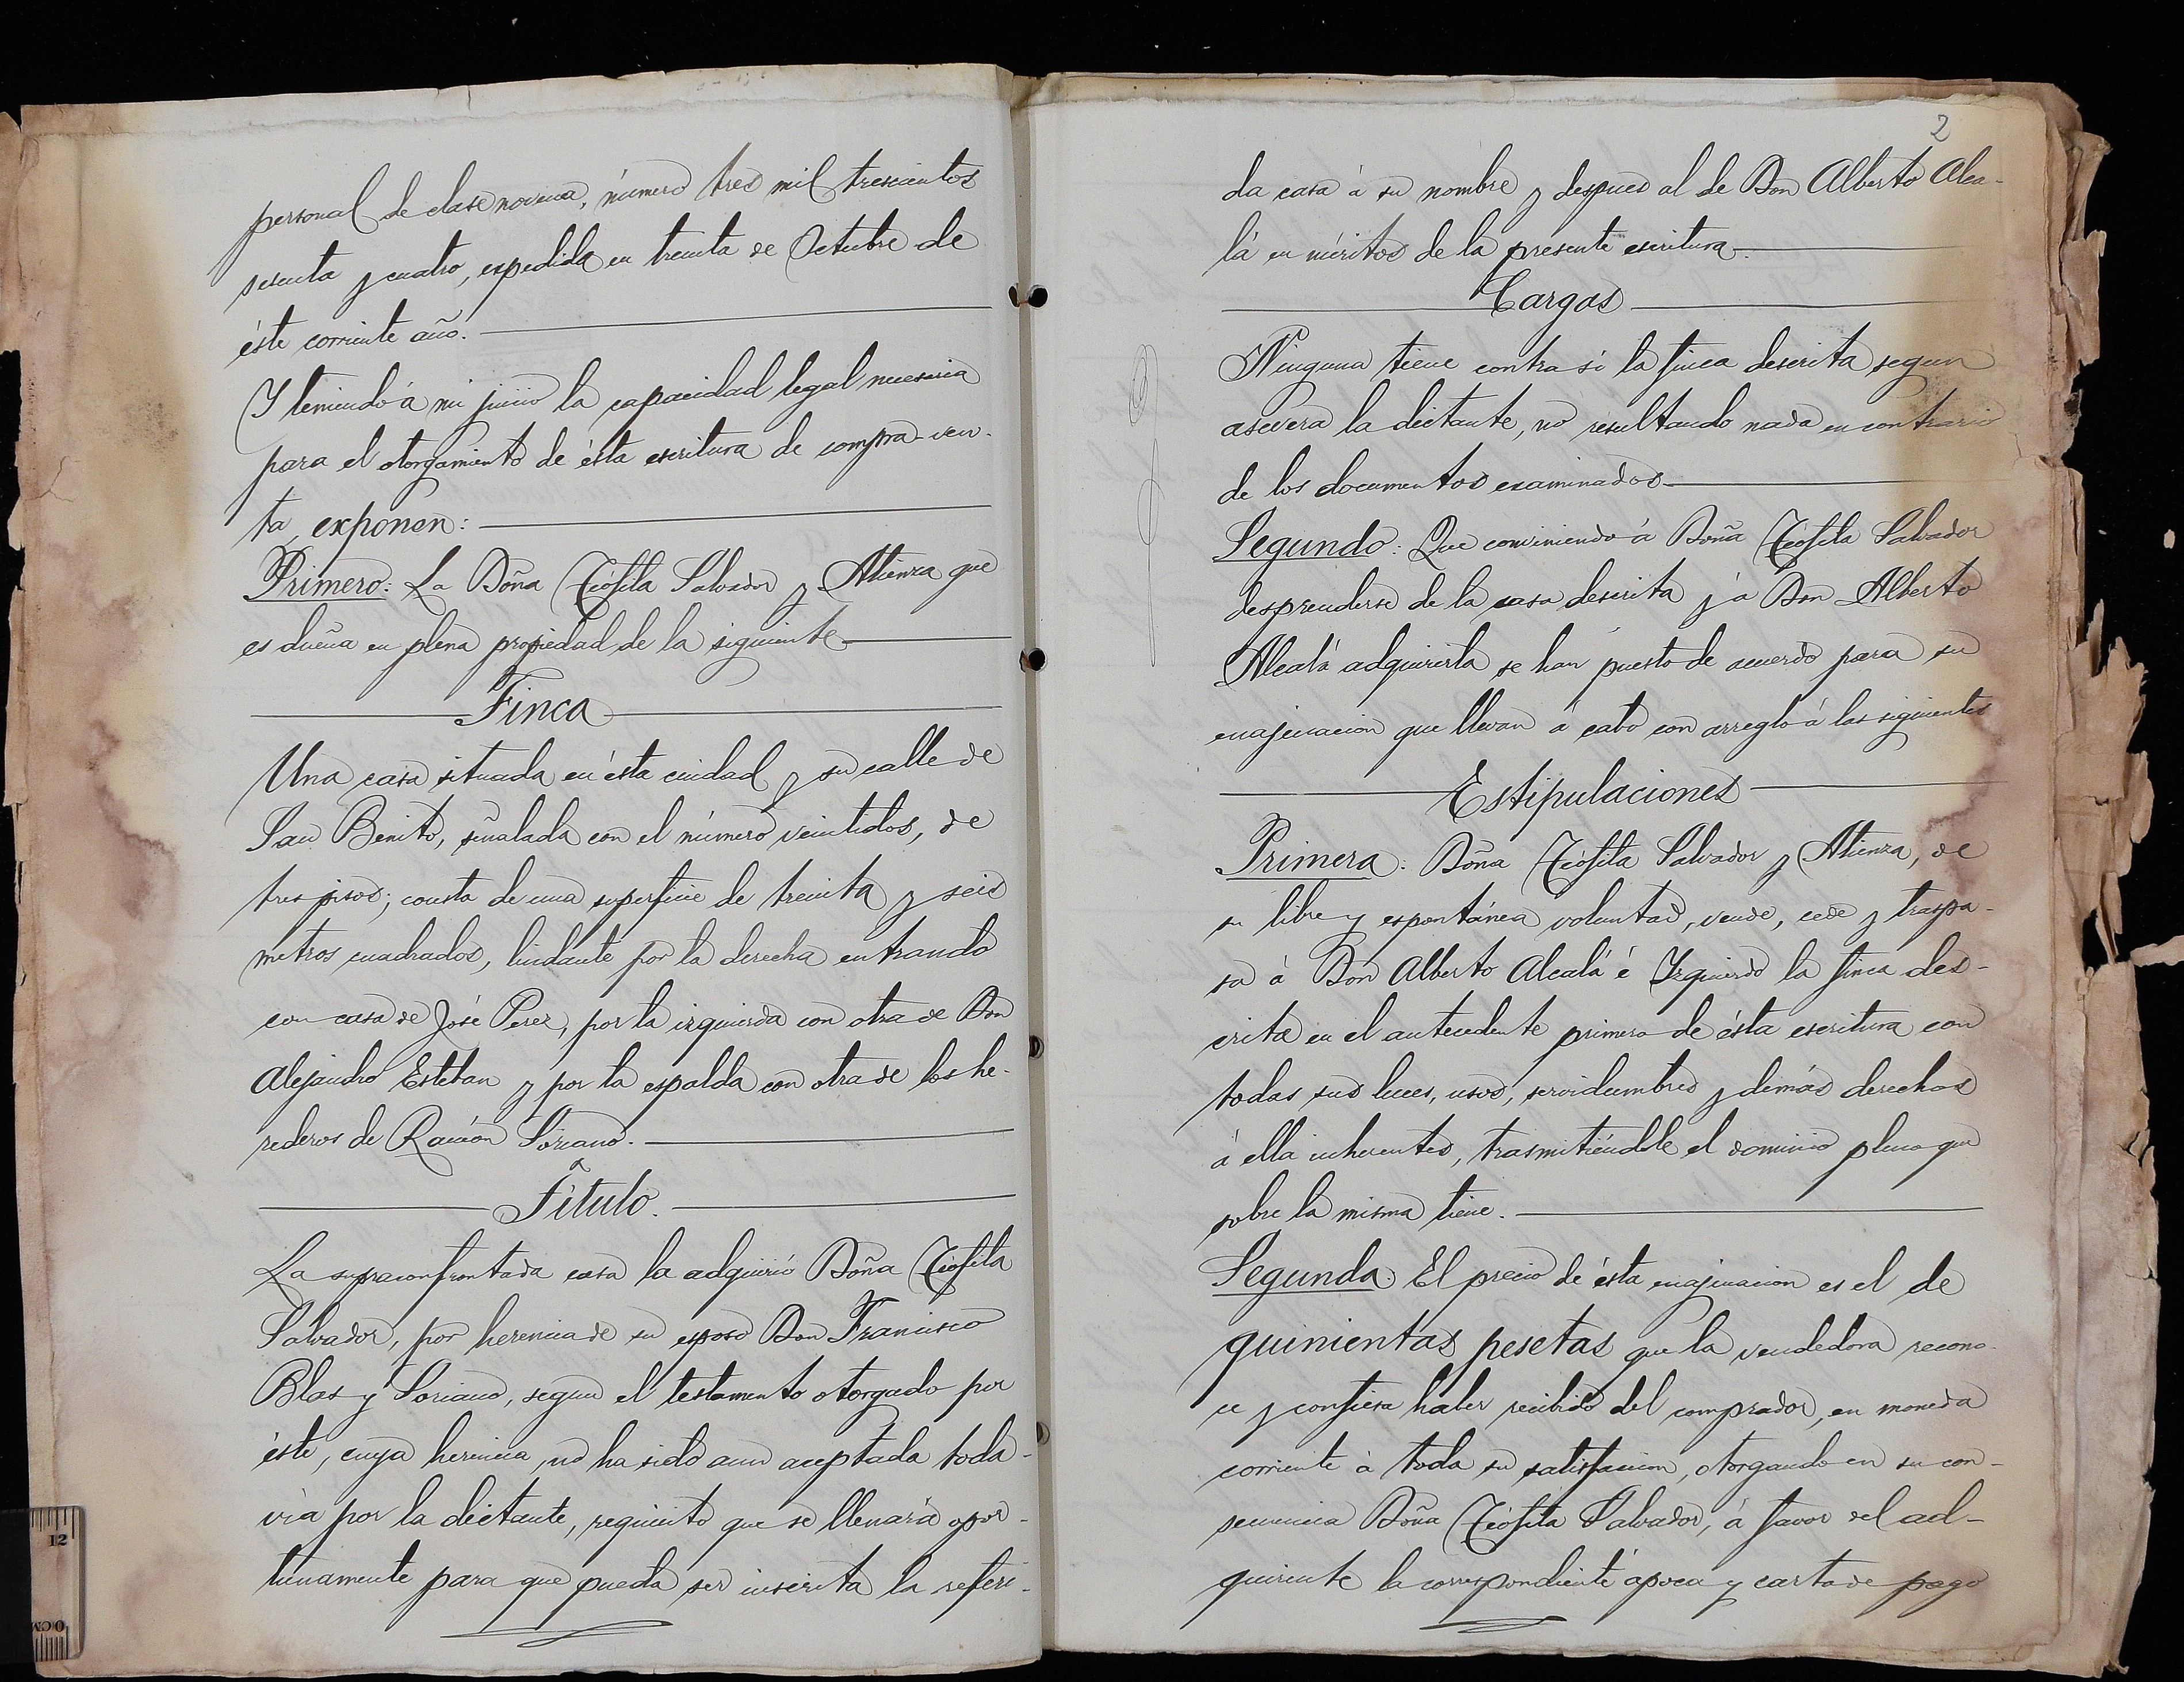 personal de clase novena, número tres mil trescientos
sesenta y cuatro, expedida en treinta de Octubre de
éste corriente año.
Y teniendo á mi juicio la capacidad legal necesaria
para el otorgamiento de ésta escritura de compra-ven-
ta, exponen:
Primero: La Doña Teófila Salvador y Atienza que
es dueña en plena propiedad de la siguiente
Finca
Una casa situada en ésta ciudad y su calle de
San Benito, señalada con el número veintidos, de
tres pisos; consta de una superficie de treinta y seis
metros cuadrados, lindante por la derecha entrando
con casa de José Perez, por la izquierda con otra de Don
Alejandro Esteban y por la espalda con otra de los he-
rederos de Ramón Soriano.
Título.
La supraconfrontada casa la adquirió Doña Teófila
Salvador, por herencia de su esposo Don Francisco
Blas y Soriano, segun el testamento otorgado por
éste, cuya herencia, no ha sido aun aceptada toda-
vía por la dictante, requisito que se llenará opor-
tunamente para que pueda ser inscrita la referi-
2
da casa á su nombre y despues al de Don Alberto Alca-
lá en méritos de la presente escritura.
Cargas
Ninguna tiene contra sí la finca descrita segun
asevera la dictante, no resultando nada en contrario
de los documentos examinados
Segundo: Que conviniendo á Doña Teófila Salvador
desprenderse de la casa descrita y á Don Alberto
Alcalá adquirirla se han puesto de acuerdo para su
enajenacion que llevan á cabo con arreglo á las siguientes
Estipulaciones
Primera: Doña Teófila Salvador y Atienza, de
su libre y espontánea voluntad, vende, cede y traspa-
sa á Don Alberto Alcalá é Yzquierdo la finca des-
crita en el antecedente primero de ésta escritura con
todas sus luces, usos, servidumbres y demás derechos
á ella inherentes, trasmitiéndole el dominio pleno que
sobre la misma tiene.
Segunda: El precio de ésta enajenacion es el de
quinientas pesetas que la vendedora recono-
ce y confiesa haber recibido del comprador, en moneda
corriente á toda su satisfaccion, otorgando en su con-
secuencia Doña Teófila Salvador, á favor del ad-
quirente la correspondiente ápoca y carta de pago
12
0 CM